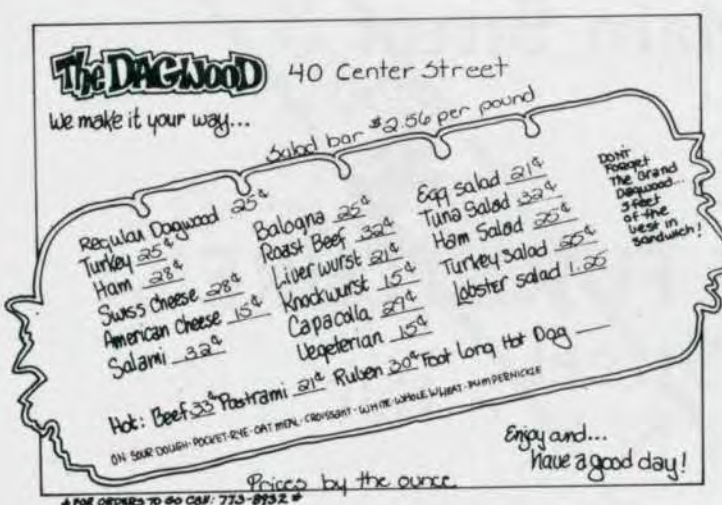 The DAGWOOD
40 Center Street
We make it your way...
Salad bar $2.56 per pound
Regular Dagwood 25¢
Turkey 25¢
Ham 28¢
Swiss cheese 28¢
American Cheese 15¢
Salami 32¢
Balogna 25¢
Roast Beef 32¢
Liver wurst 21¢
Knockwurst 15¢
Capacolla 29¢
Vegeterian 15¢
Egg salad 21¢
Tuna Salad 32¢
Ham Salad 25¢
Turkey salad 25¢
Lobster salad 1.25
DON'T
FORGET
The Grand
Dagwood...
3 feet
of the
best in
sandwich!
Hot: Beef 33¢ Pastrami 21¢ Ruben 30¢ Foot Long Hot Dog
ON SOUR DOUGH·POCKET·RYE·OATMEAL·CROISSANT·WHITE·WHOLE WHEAT·PUMPERNICKLE
Enjoy and...
have a good day!
Prices by the ounce
* FOR ORDERS TO GO CALL: 773-8932 *